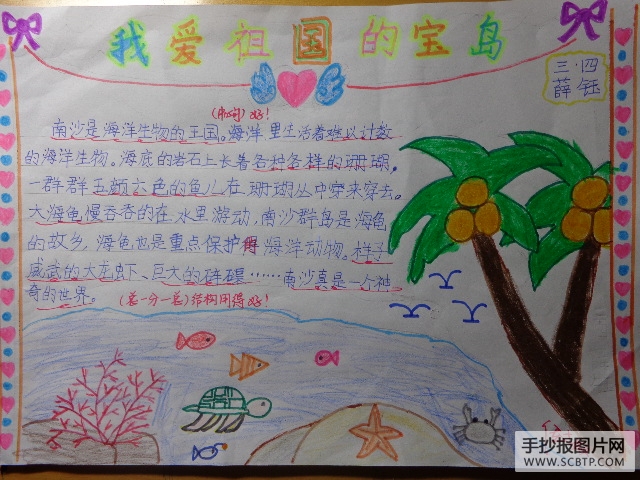 我爱祖国的宝岛
三·四
薛钰
(来句)好!
南沙是海洋生物的王国。海洋里生活着难以计数
的海洋生物。海底的岩石上长着各种各样的珊瑚,
一群群五颜六色的鱼儿在珊瑚丛中穿来穿去。
大海龟慢吞吞的在水里游动,南沙群岛是海龟
的故乡,海龟也是重点保护得海洋动物。样子
威武的大龙虾、巨大的砗磲……南沙真是一个神
奇的世界。 (总一分一总)结构用得好!
手抄报图片网
WWW.SCBTP.COM